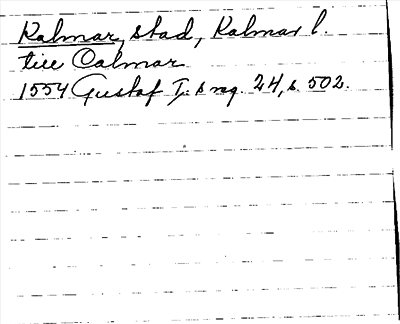 Kalmar, stad, Kalmar l.
till Calmar
1554 Gustaf I:s reg. 24, s. 502.